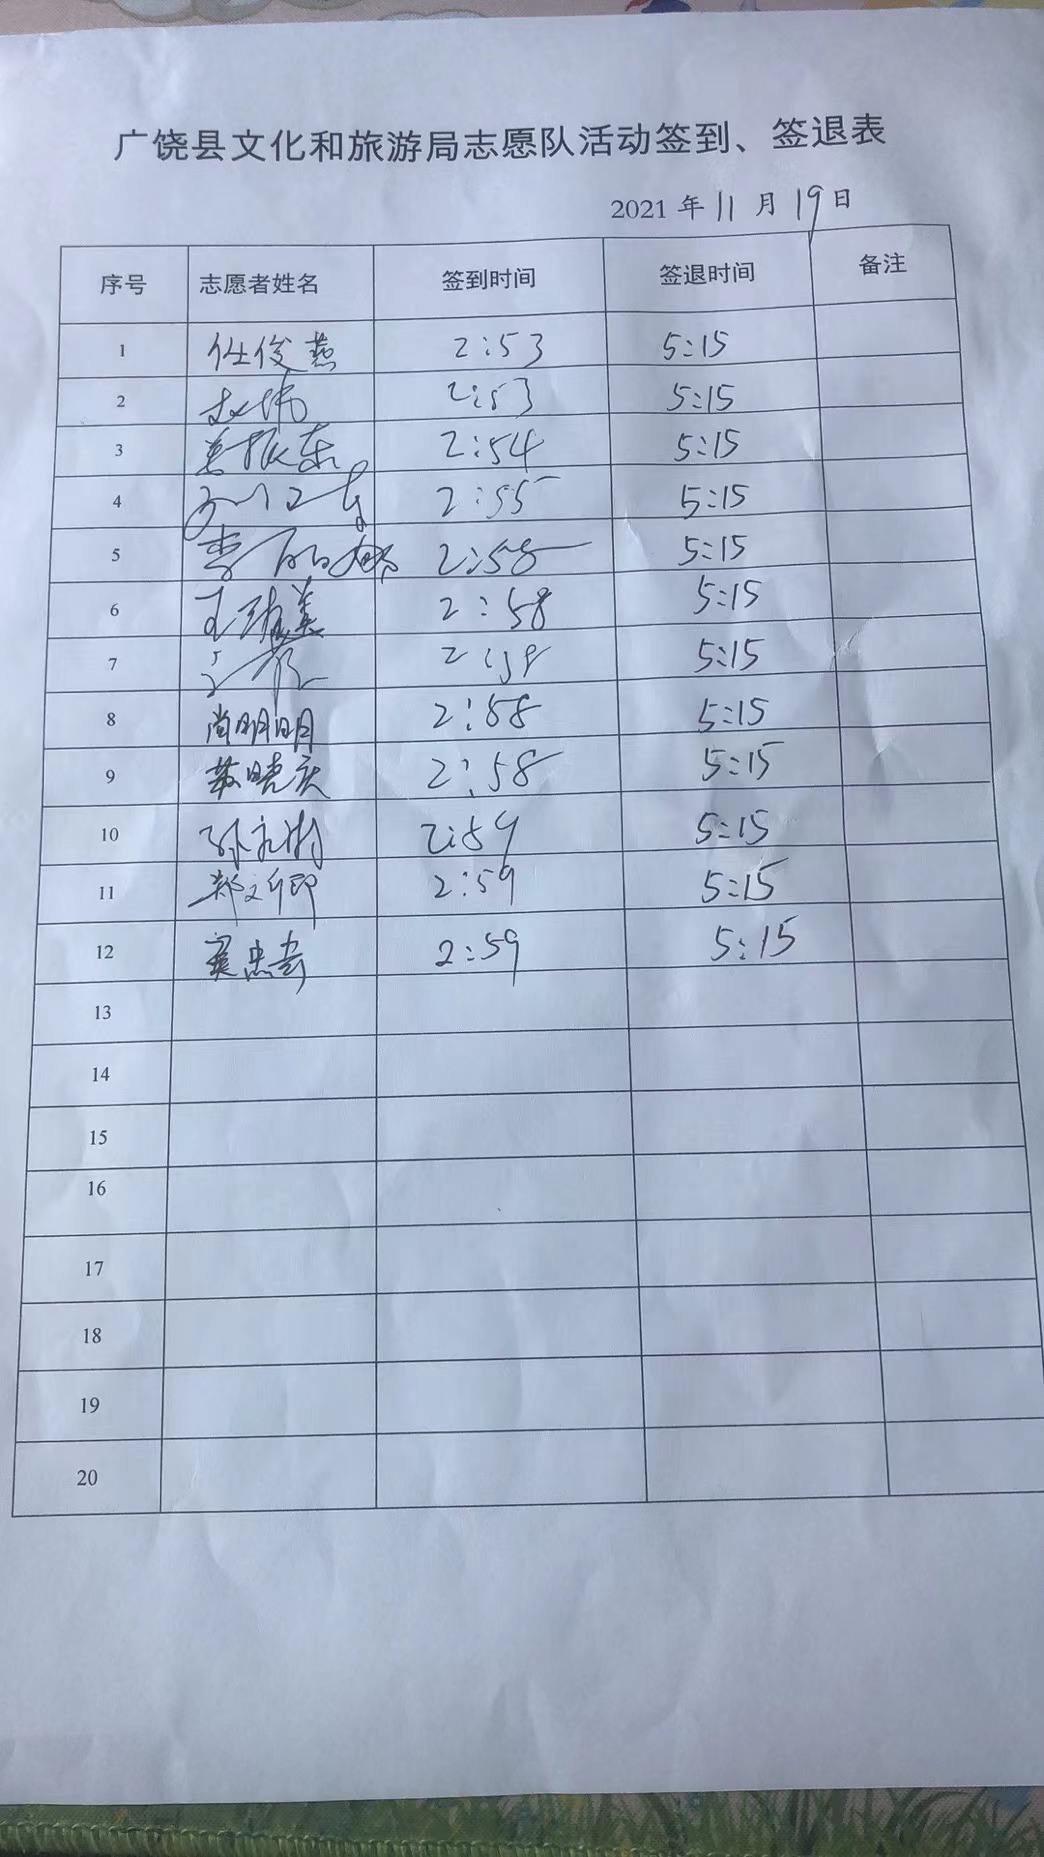 广饶县文化和旅游局志愿队活动签到、签退表
2021 年 11 月 19 日
序号 志愿者姓名 签到时间 签退时间 备注
1 任俊燕 2:53 5:15
2 赵伟 2:53 5:15
3 振东 2:54 5:15
4 2:55 5:15
5 李 2:58 5:15
6 王 美 2:58 5:15
7 2:58 5:15
8 尚明明 2:58 5:15
9 晓庆 2:58 5:15
10 2:59 5:15
11 郑文卿 2:59 5:15
12 2:59 5:15
13
14
15
16
17
18
19
20